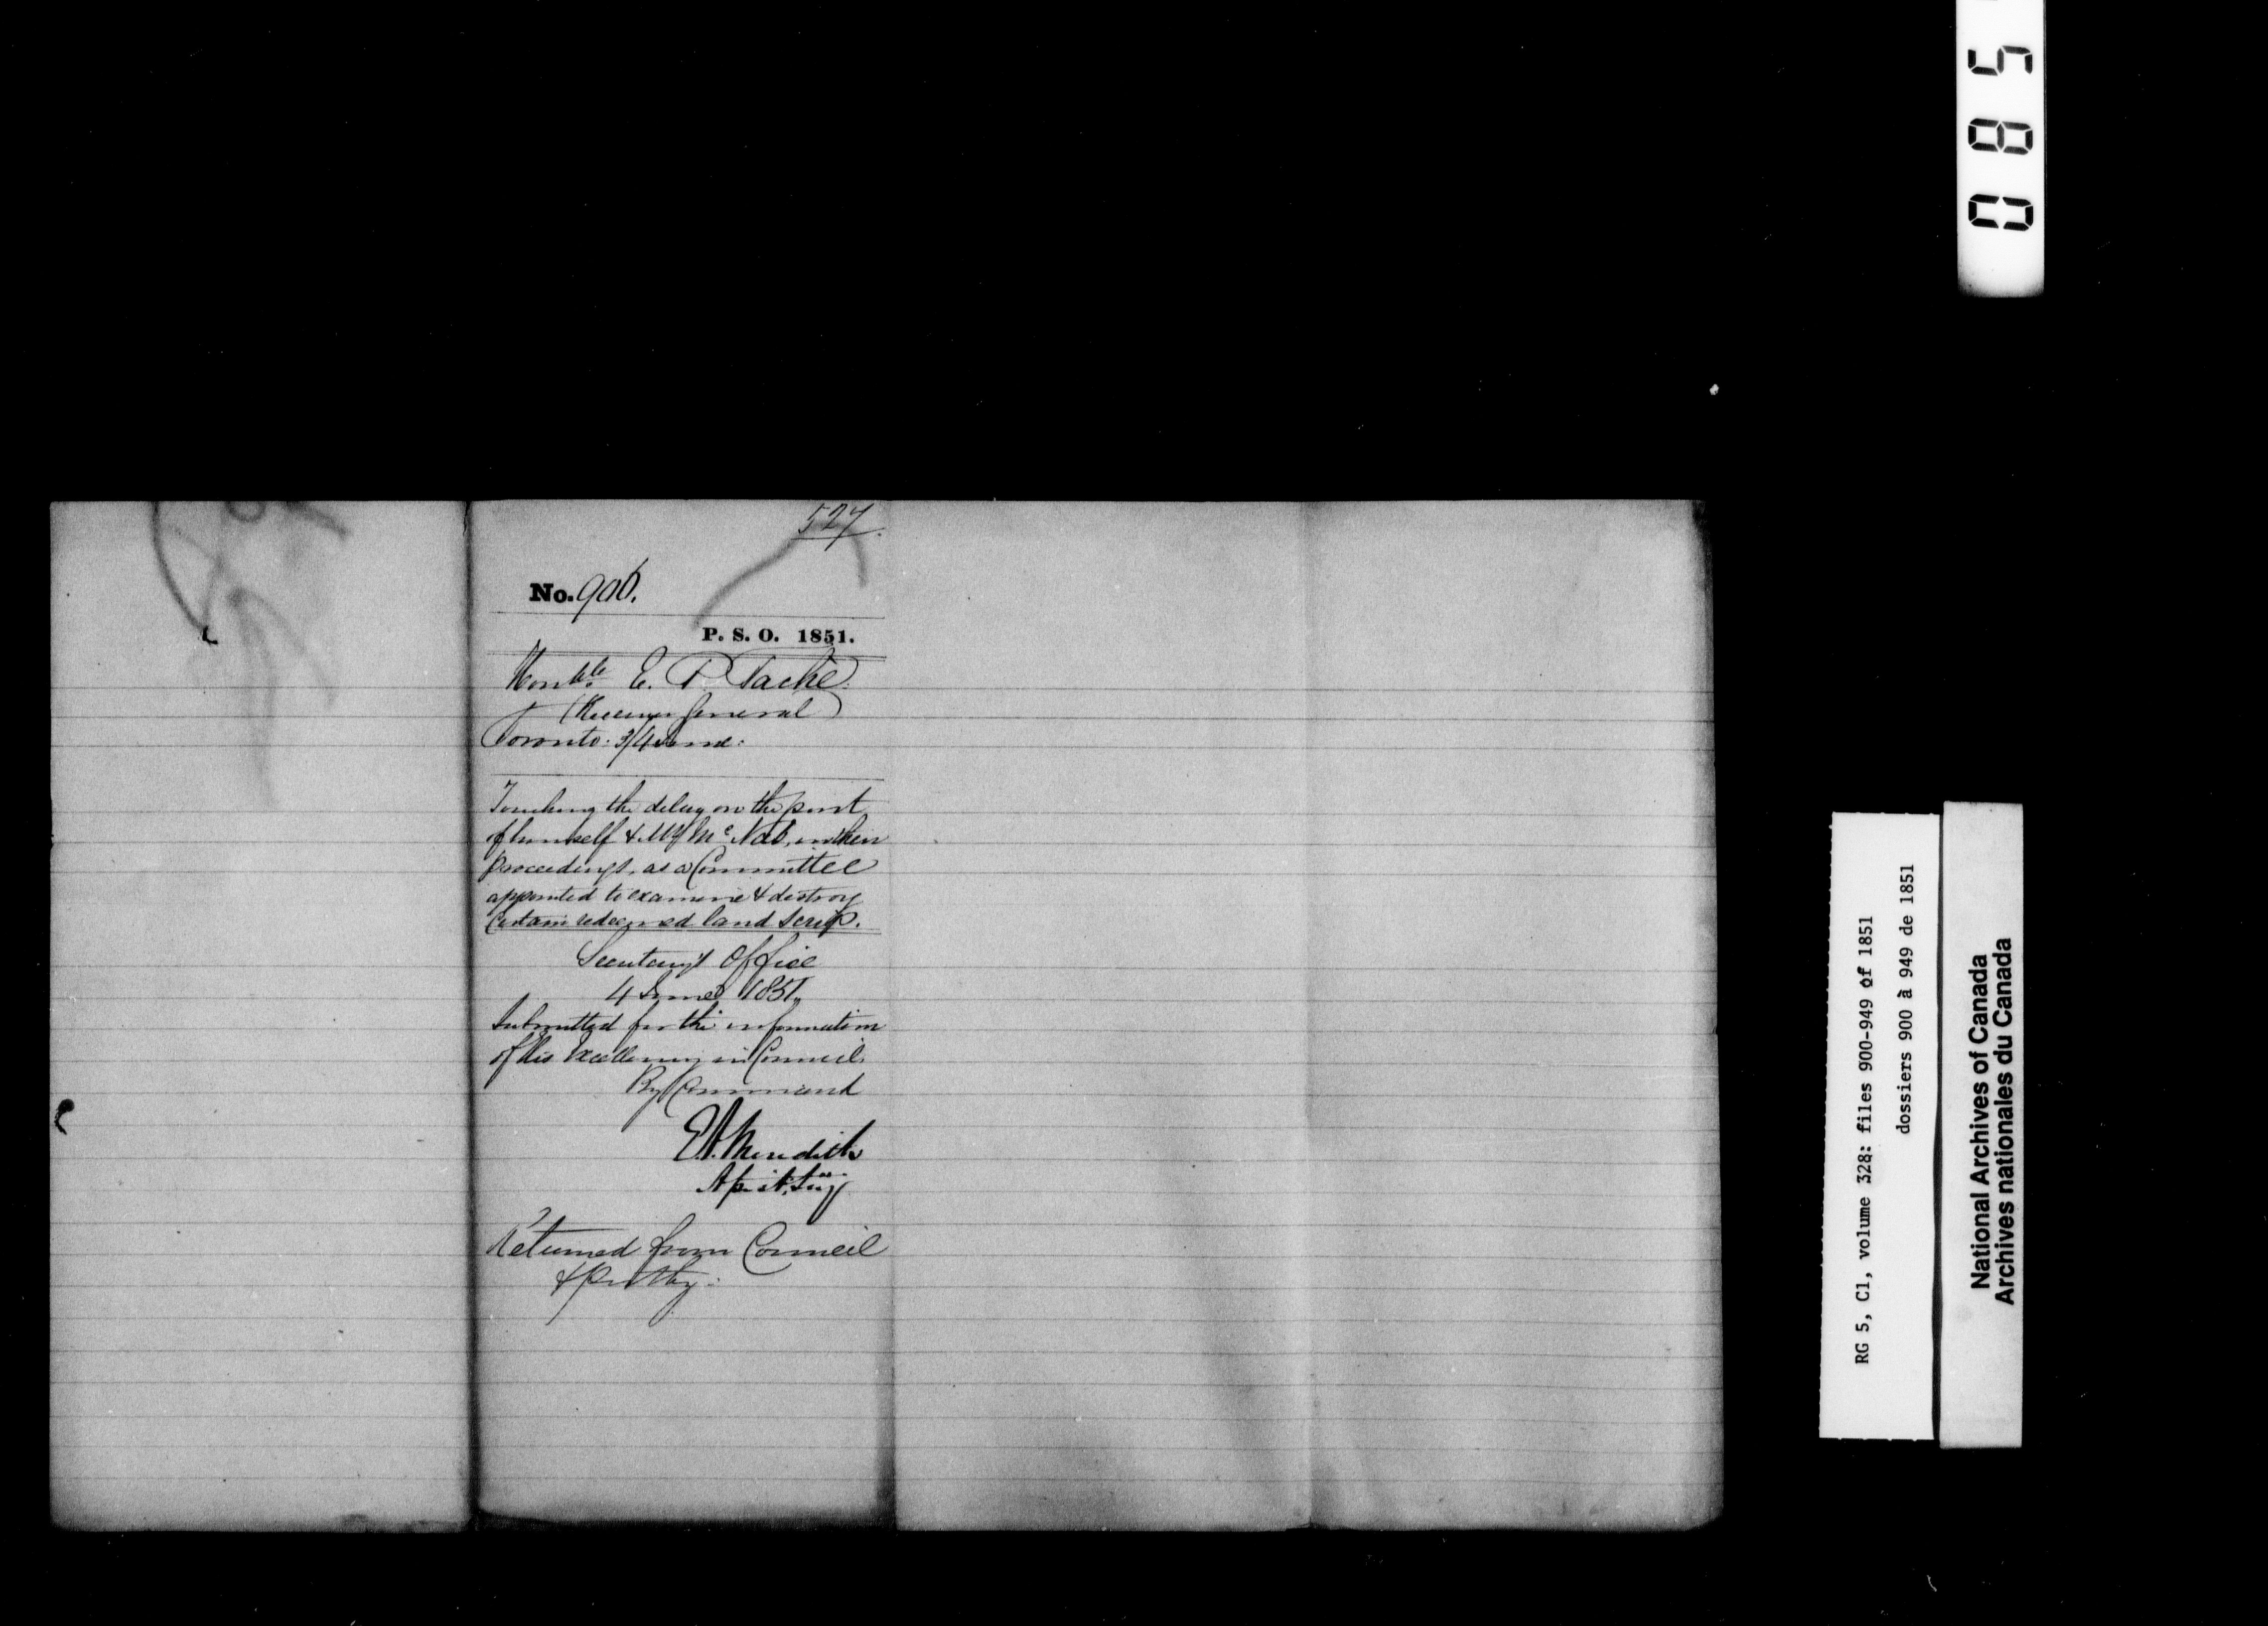 527.
No. 906.
P. S. O. 1851.
Honble. E. P. Taché
(Receiver General)
Toronto: 3/4 June:
Touching the delay on the part
of himself & Mr. McNab, in their
proceedings, as a Committee
appointed to examine & destroy
certain redeemed land Scrip.
Secretary's Office
4 June 1851.
Submitted for the information
of His Excellency in Council.
By Command
E.A. Meredith
Asst. Secy
Returned from Council
0 8 5
RG 5, C1, volume 328: files 900-949 of 1851
dossiers 900 à 949 de 1851
National Archives of Canada
Archives nationales du Canada